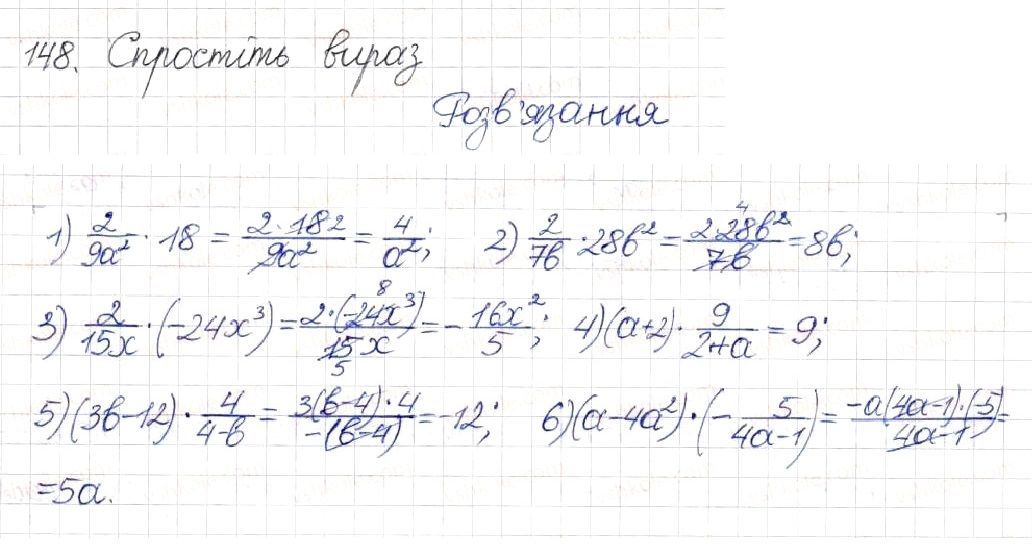 148. Спростіть вираз
Розв'язання
1) 2/9a² · 18 = 2·18 2/9a² = 4/a²; 2) 2/7b · 28b² = 2·28b² 4/7b = 8b;
3) 2/15x · (-24x³) = 2·(-24x³) 8/15x 5 = - 16x²/5; 4) (a+2) · 9/2+a = 9;
5) (3b-12) · 4/4-b = 3(b-4)·4/-(b-4) = -12; 6) (a-4a²) · (- 5/4a-1) = -a(4a-1)·(-5)/4a-1 =
=5a.